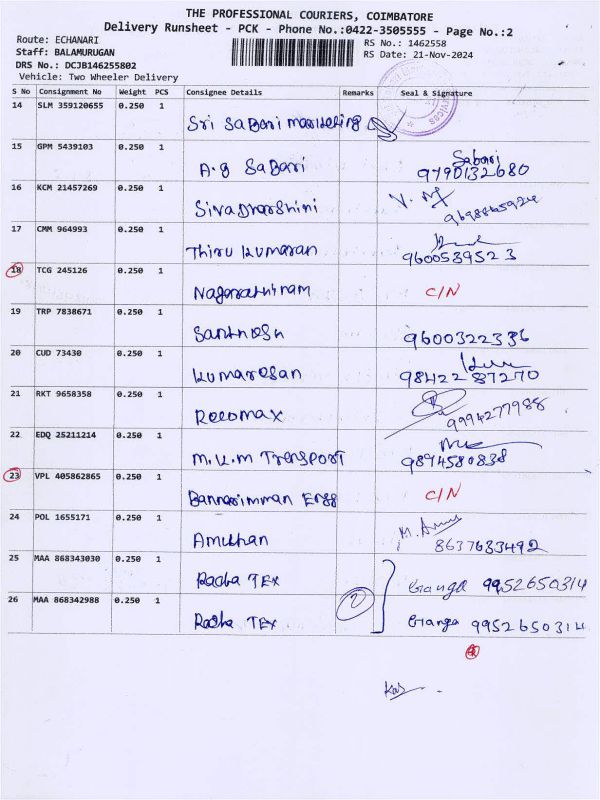 THE PROFESSIONAL COURIERS, COIMBATORE
Delivery Runsheet - PCK - Phone No.:0422-3505555 - Page No.:2
Route: ECHANARI
RS No.: 1462558
Staff: BALAMURUGAN
RS Date: 21-Nov-2024
DRS No.: DCJB146255802
Vehicle: Two Wheeler Delivery
S No Consignment No Weight PCS Consignee Details Remarks Seal & Signature
14 SLM 359120655 0.250 1 Sri Sabari marketing
15 GPM 5439103 0.250 1 A.g Sabari Sabari 9790132680
16 KCM 21457269 0.250 1 Sivadharshini
17 CMM 964993 0.250 1 Thiru kumaran 9600539523
18 TCG 245126 0.250 1 Nagarathinam C/N
19 TRP 7838671 0.250 1 Santhosh 9600322336
20 CUD 73430 0.250 1 kumaresan 98422 87270
21 RKT 9658358 0.250 1 Rocomax 9994277988
22 EDQ 25211214 0.250 1 M.K.M Transport 9894580838
23 VPL 405862865 0.250 1 Bannarimman Engg C/N
24 POL 1655171 0.250 1 Amuthan 8637683492
25 MAA 868343030 0.250 1 Radha TEX Ganga 9952650314
26 MAA 868342988 0.250 1 Radha TEX 2 Ganga 9952650314